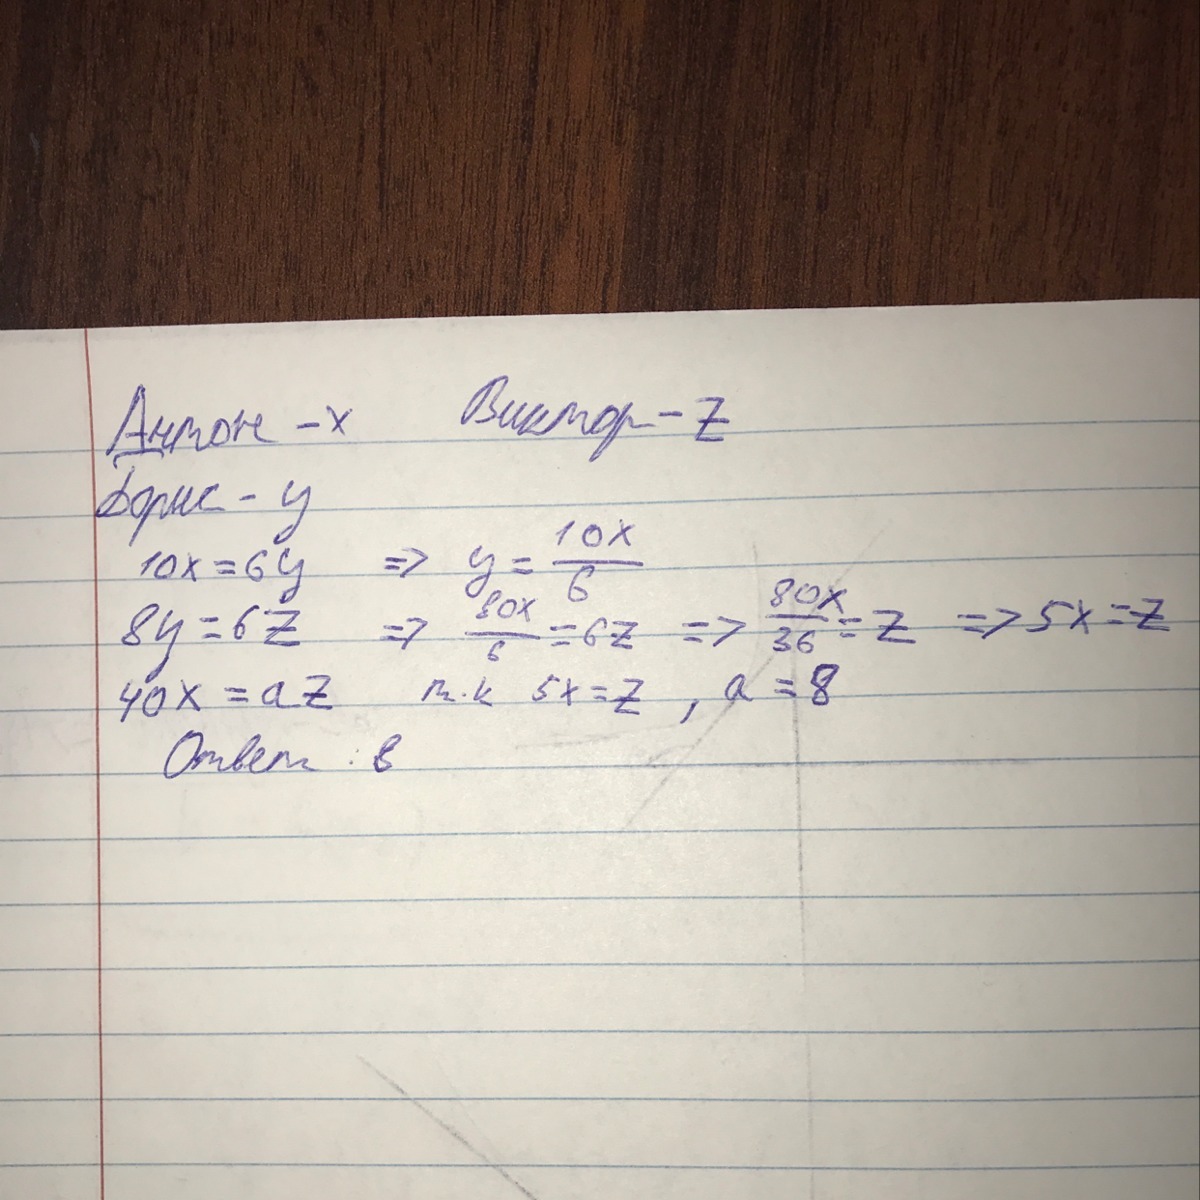 Антон - x Виктор - z
Борис - y
10x = 6y => y = 10x/6
8y = 6z => 80x/6 = 6z => 80x/36 = z => 5x = z
40x = az т.к 5x = z , a = 8
Ответ : 8